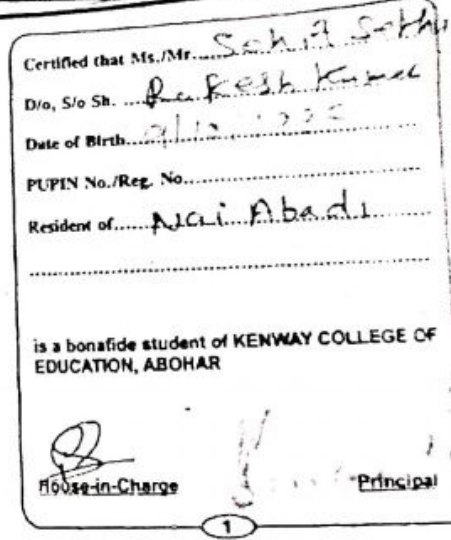 Certified that Ms./Mr....Sahil Sethi
D/o, S/o Sh. ...Rakesh Kumar
Date of Birth...
PUPIN No./Reg. No...
Resident of...Nai Abadi
is a bonafide student of KENWAY COLLEGE OF
EDUCATION, ABOHAR
House-in-Charge Principal
1